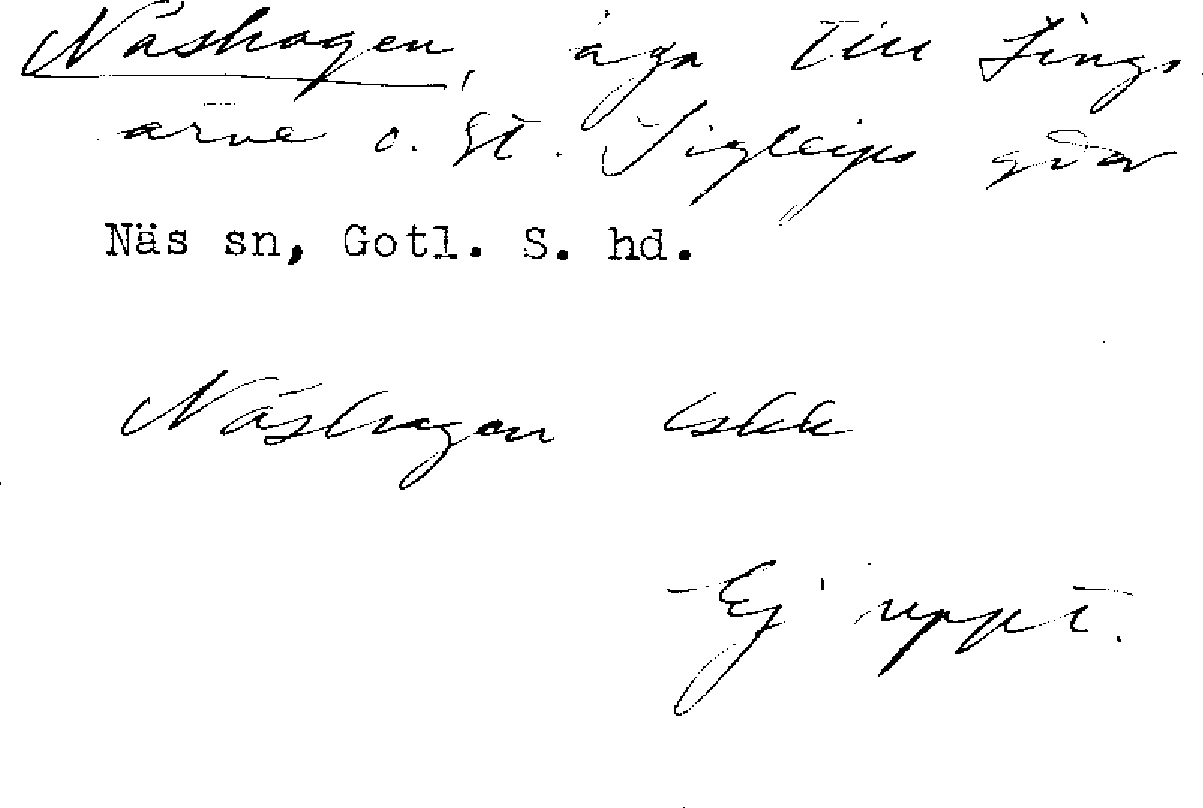 Näshagen, äga till Lings-
arve o. St. Sigleips gdar
Näs sn, Gotl. S. hd.
Näshagen lskk
Ej uppt.